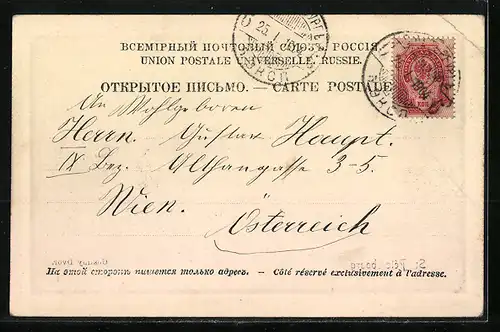 ВСЕМІРНЫЙ ПОЧТОВЫЙ СОЮЗЪ. РОССІЯ.
UNION POSTALE UNIVERSELLE. RUSSIE.
ОТКРЫТОЕ ПИСЬМО. — CARTE POSTALE
An Wohlgeboren
Herrn. Gustav Haupt.
IX Bez. Althangasse 3-5.
Wien.
Österreich
На этой сторонѣ пишется только адресъ. — Côté réservé exclusivement à l'adresse.